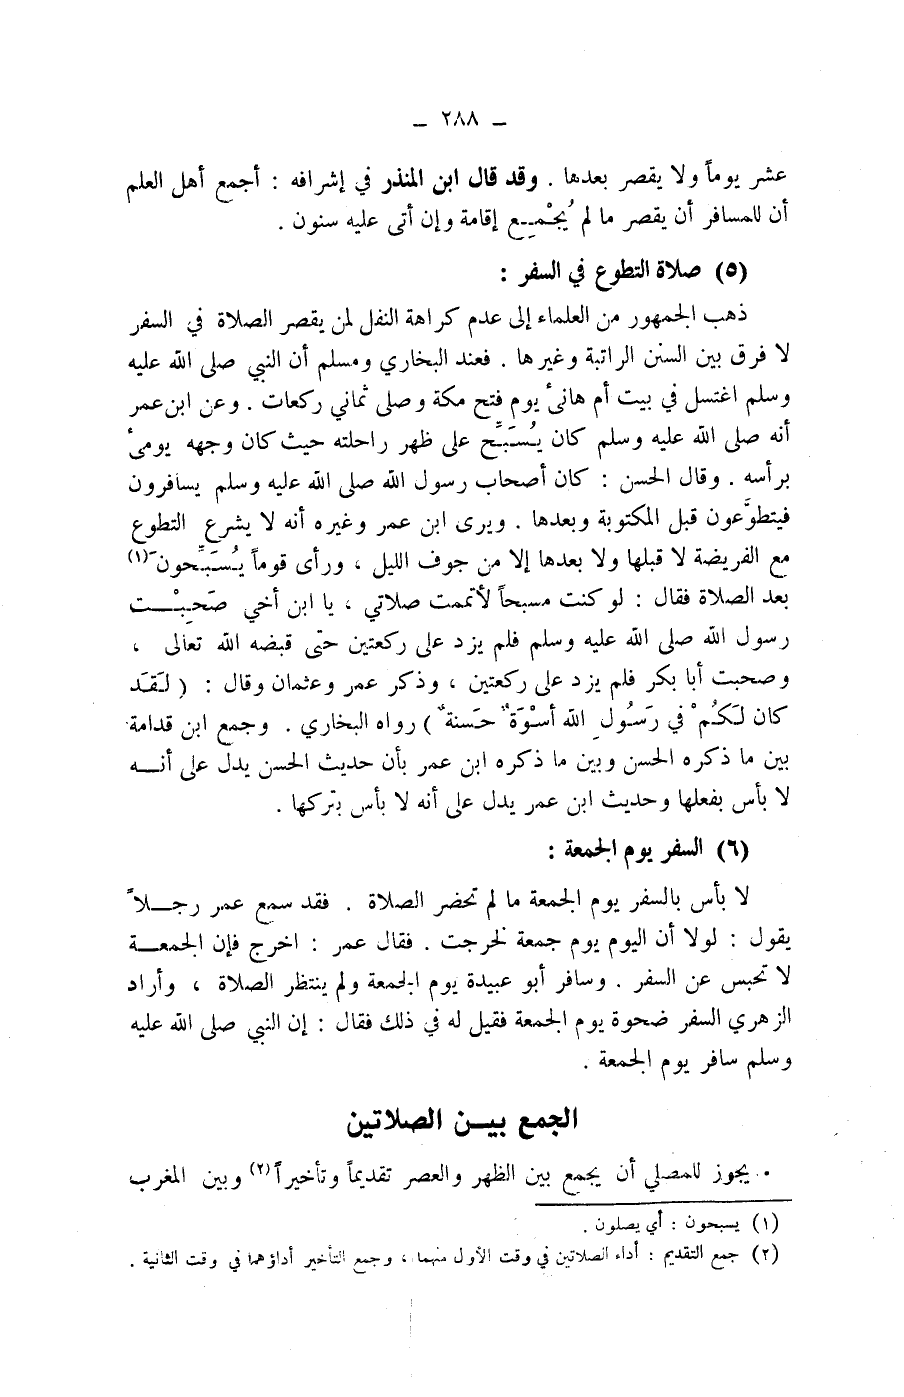 ـ ٢٨٨ ـ
عشر يوماً ولا يقصر بعدها . وقد قال ابن المنذر في إشرافه : أجمع أهل العلم
أن للمسافر أن يقصر ما لم يُجْمِع إقامة وإن أتى عليه سنون .
(٥) صلاة التطوع في السفر :
ذهب الجمهور من العلماء إلى عدم كراهة النفل لمن يقصر الصلاة في السفر
لا فرق بين السنن الراتبة وغيرها . فعند البخاري ومسلم أن النبي صلى الله عليه
وسلم اغتسل في بيت أم هانئ يوم فتح مكة وصلى ثماني ركعات . وعن ابن عمر
أنه صلى الله عليه وسلم كان يُسَبِّح على ظهر راحلته حيث كان وجهه يومئ
برأسه . وقال الحسن : كان أصحاب رسول الله صلى الله عليه وسلم يسافرون
فيتطوَّعون قبل المكتوبة وبعدها . ويرى ابن عمر وغيره أنه لا يشرع التطوع
مع الفريضة لا قبلها ولا بعدها إلا من جوف الليل ، ورأى قوماً يُسَبِّحون (١)
بعد الصلاة فقال : لو كنت مسبحاً لأتممت صلاتي ، يا ابن أخي صَحِبْت
رسول الله صلى الله عليه وسلم فلم يزد على ركعتين حتى قبضه الله تعالى ،
وصحبت أبا بكر فلم يزد على ركعتين ، وذكر عمر وعثمان وقال : ( لَقَد
كان لَكُمْ في رَسُولِ الله أسْوَةٌ حَسنةٌ ) رواه البخاري . وجمع ابن قدامة
بين ما ذكره الحسن وبين ما ذكره ابن عمر بأن حديث الحسن يدل على أنــه
لا بأس بفعلها وحديث ابن عمر يدل على أنه لا بأس بتركها .
(٦) السفر يوم الجمعة :
لا بأس بالسفر يوم الجمعة ما لم تحضر الصلاة . فقد سمع عمر رجــلاً
يقول : لولا أن اليوم يوم جمعة لخرجت . فقال عمر : اخرج فإن الجمعــة
لا تحبس عن السفر . وسافر أبو عبيدة يوم الجمعة ولم ينتظر الصلاة ، وأراد
الزهري السفر ضحوة يوم الجمعة فقيل له في ذلك فقال : إن النبي صلى الله عليه
وسلم سافر يوم الجمعة .
الجمع بيــن الصلاتين
. يجوز للمصلي أن يجمع بين الظهر والعصر تقديماً وتأخيراً (٢) وبين المغرب
(١) يسبحون : أي يصلون .
(٢) جمع التقديم : أداء الصلاتين في وقت الأول منهما ، وجمع التأخير أداؤهما في وقت الثانية .